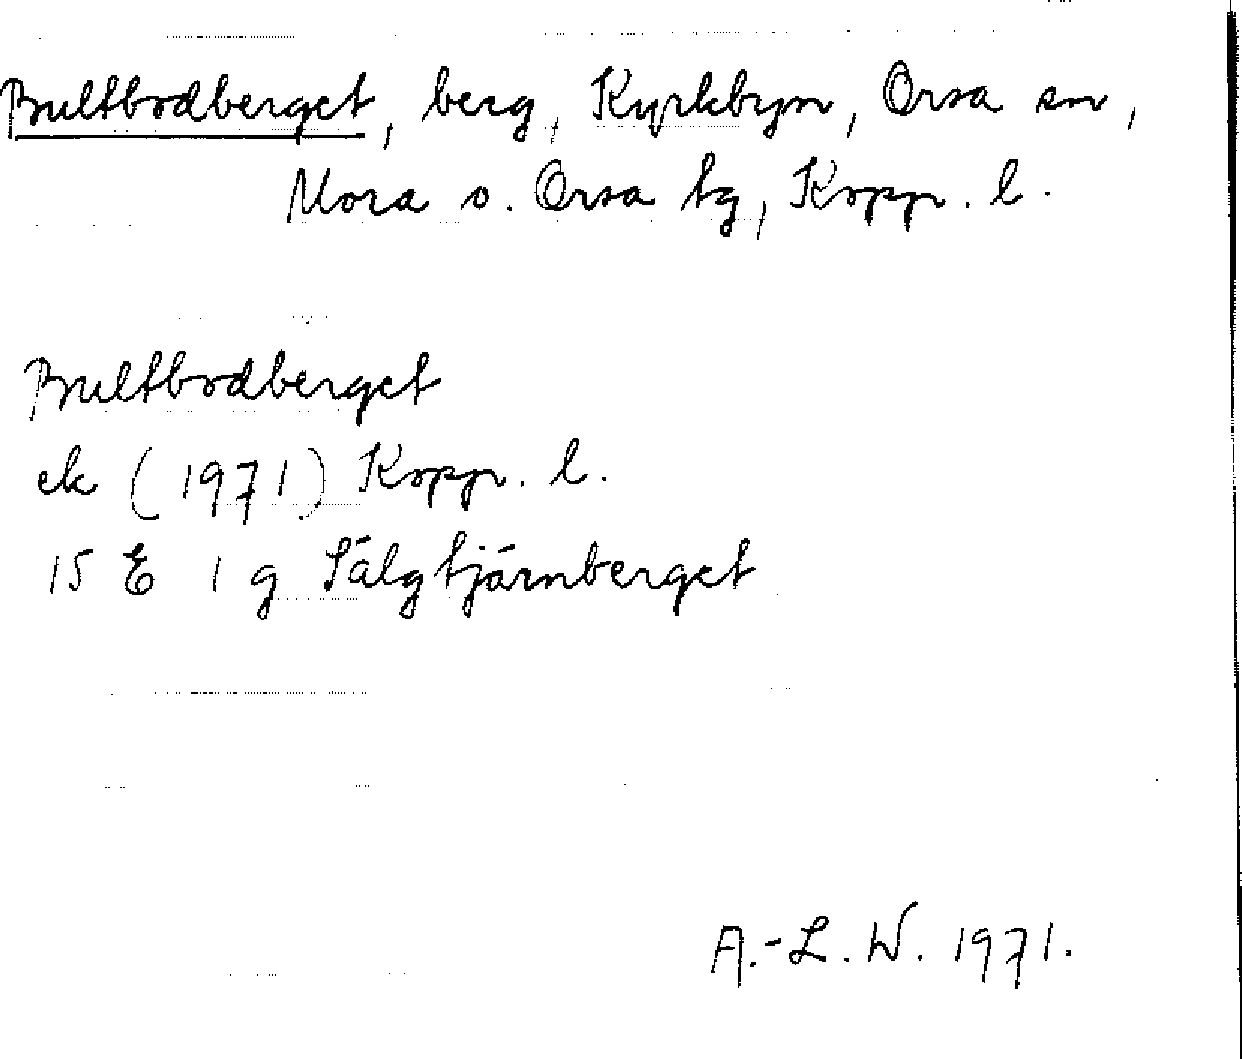 Bultbodberget, berg, Kyrkbyn, Orsa sn,
Mora o. Orsa tg, Kopp. l.
Bultbodberget
ek (1971) Kopp. l.
15 E 1 g Sälgtjärnberget
A.-L. W. 1971.